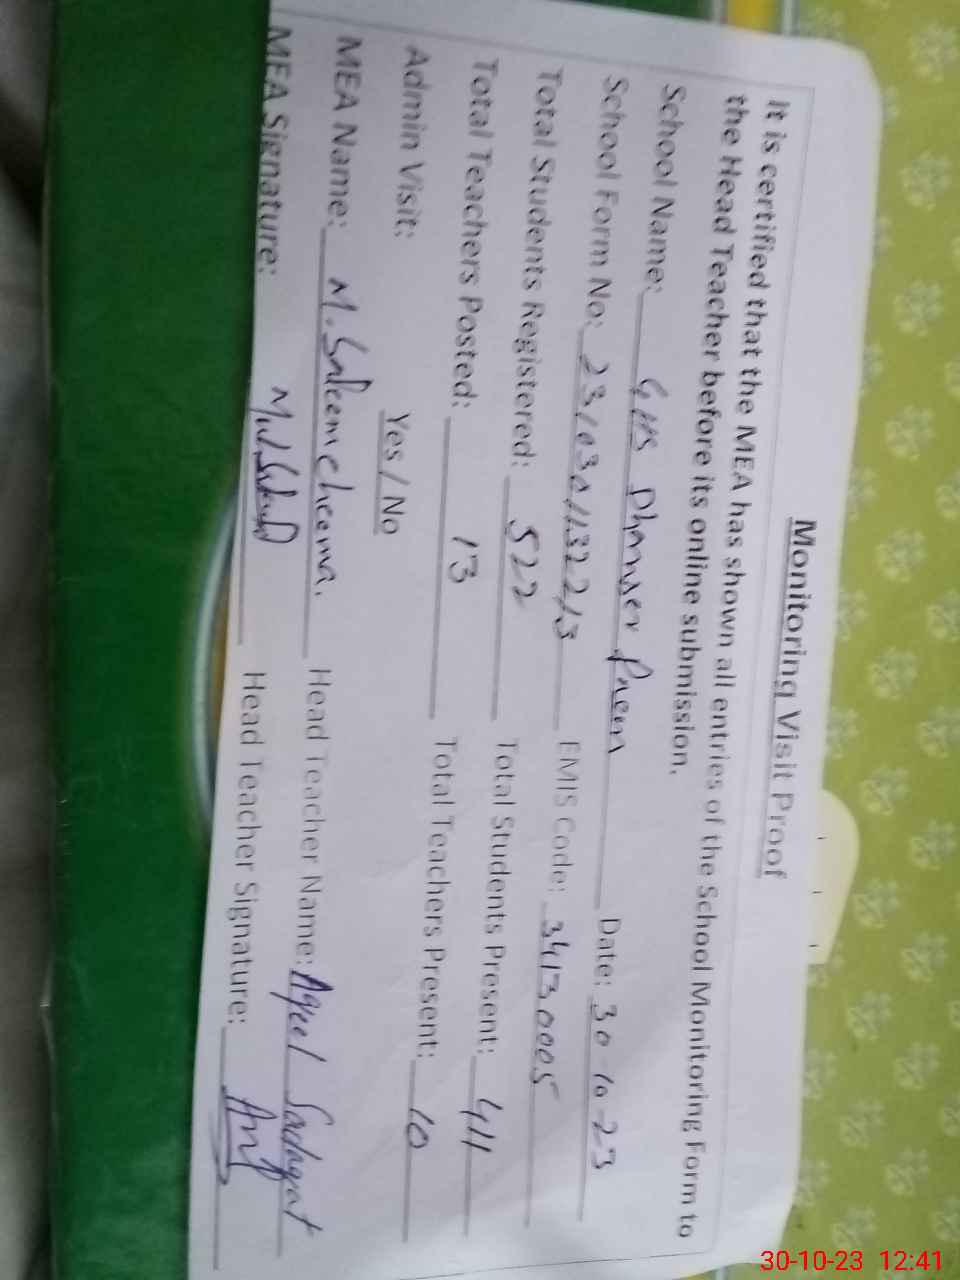 Monitoring Visit Proof
It is certified that the MEA has shown all entries of the School Monitoring Form to
the Head Teacher before its online submission.
School Name: GHS Dhamser Paem Date: 30-10-23
School Form No: EMIS Code: 34130005
Total Students Registered: 522 Total Students Present: 411
Total Teachers Posted: 13 Total Teachers Present: 10
Admin Visit: Yes / No
MEA Name: M. Saleem cheema. Head Teacher Name: Aqeel Sadaqat
MEA Signature: Head Teacher Signature:
30-10-23 12:41